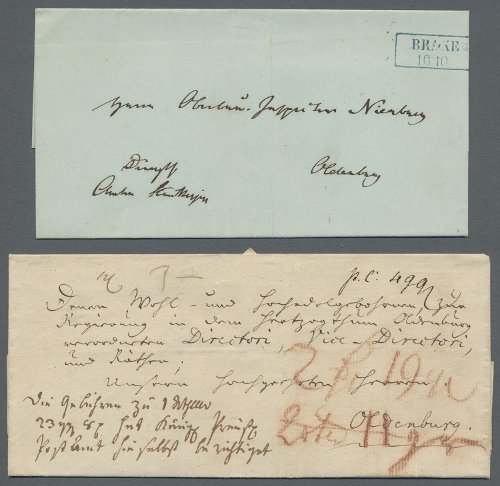 BRAKE
16.10
Herrn Oberbau-Inspector Nienburg
Oldenburg
p. c: 499
Denen Wohl- und Hochedelgebohrnen, zur
Regierung in dem Hertzogthum Oldenburg
verordneten Directori, Vice-Directori,
und Räthen,
Unsern Hochgeehrten Herren.
Oldenburg.
Die Gebühren zu 1
23 gg 8 hat Königl Preuß
Post Amt hieselbst berichtiget